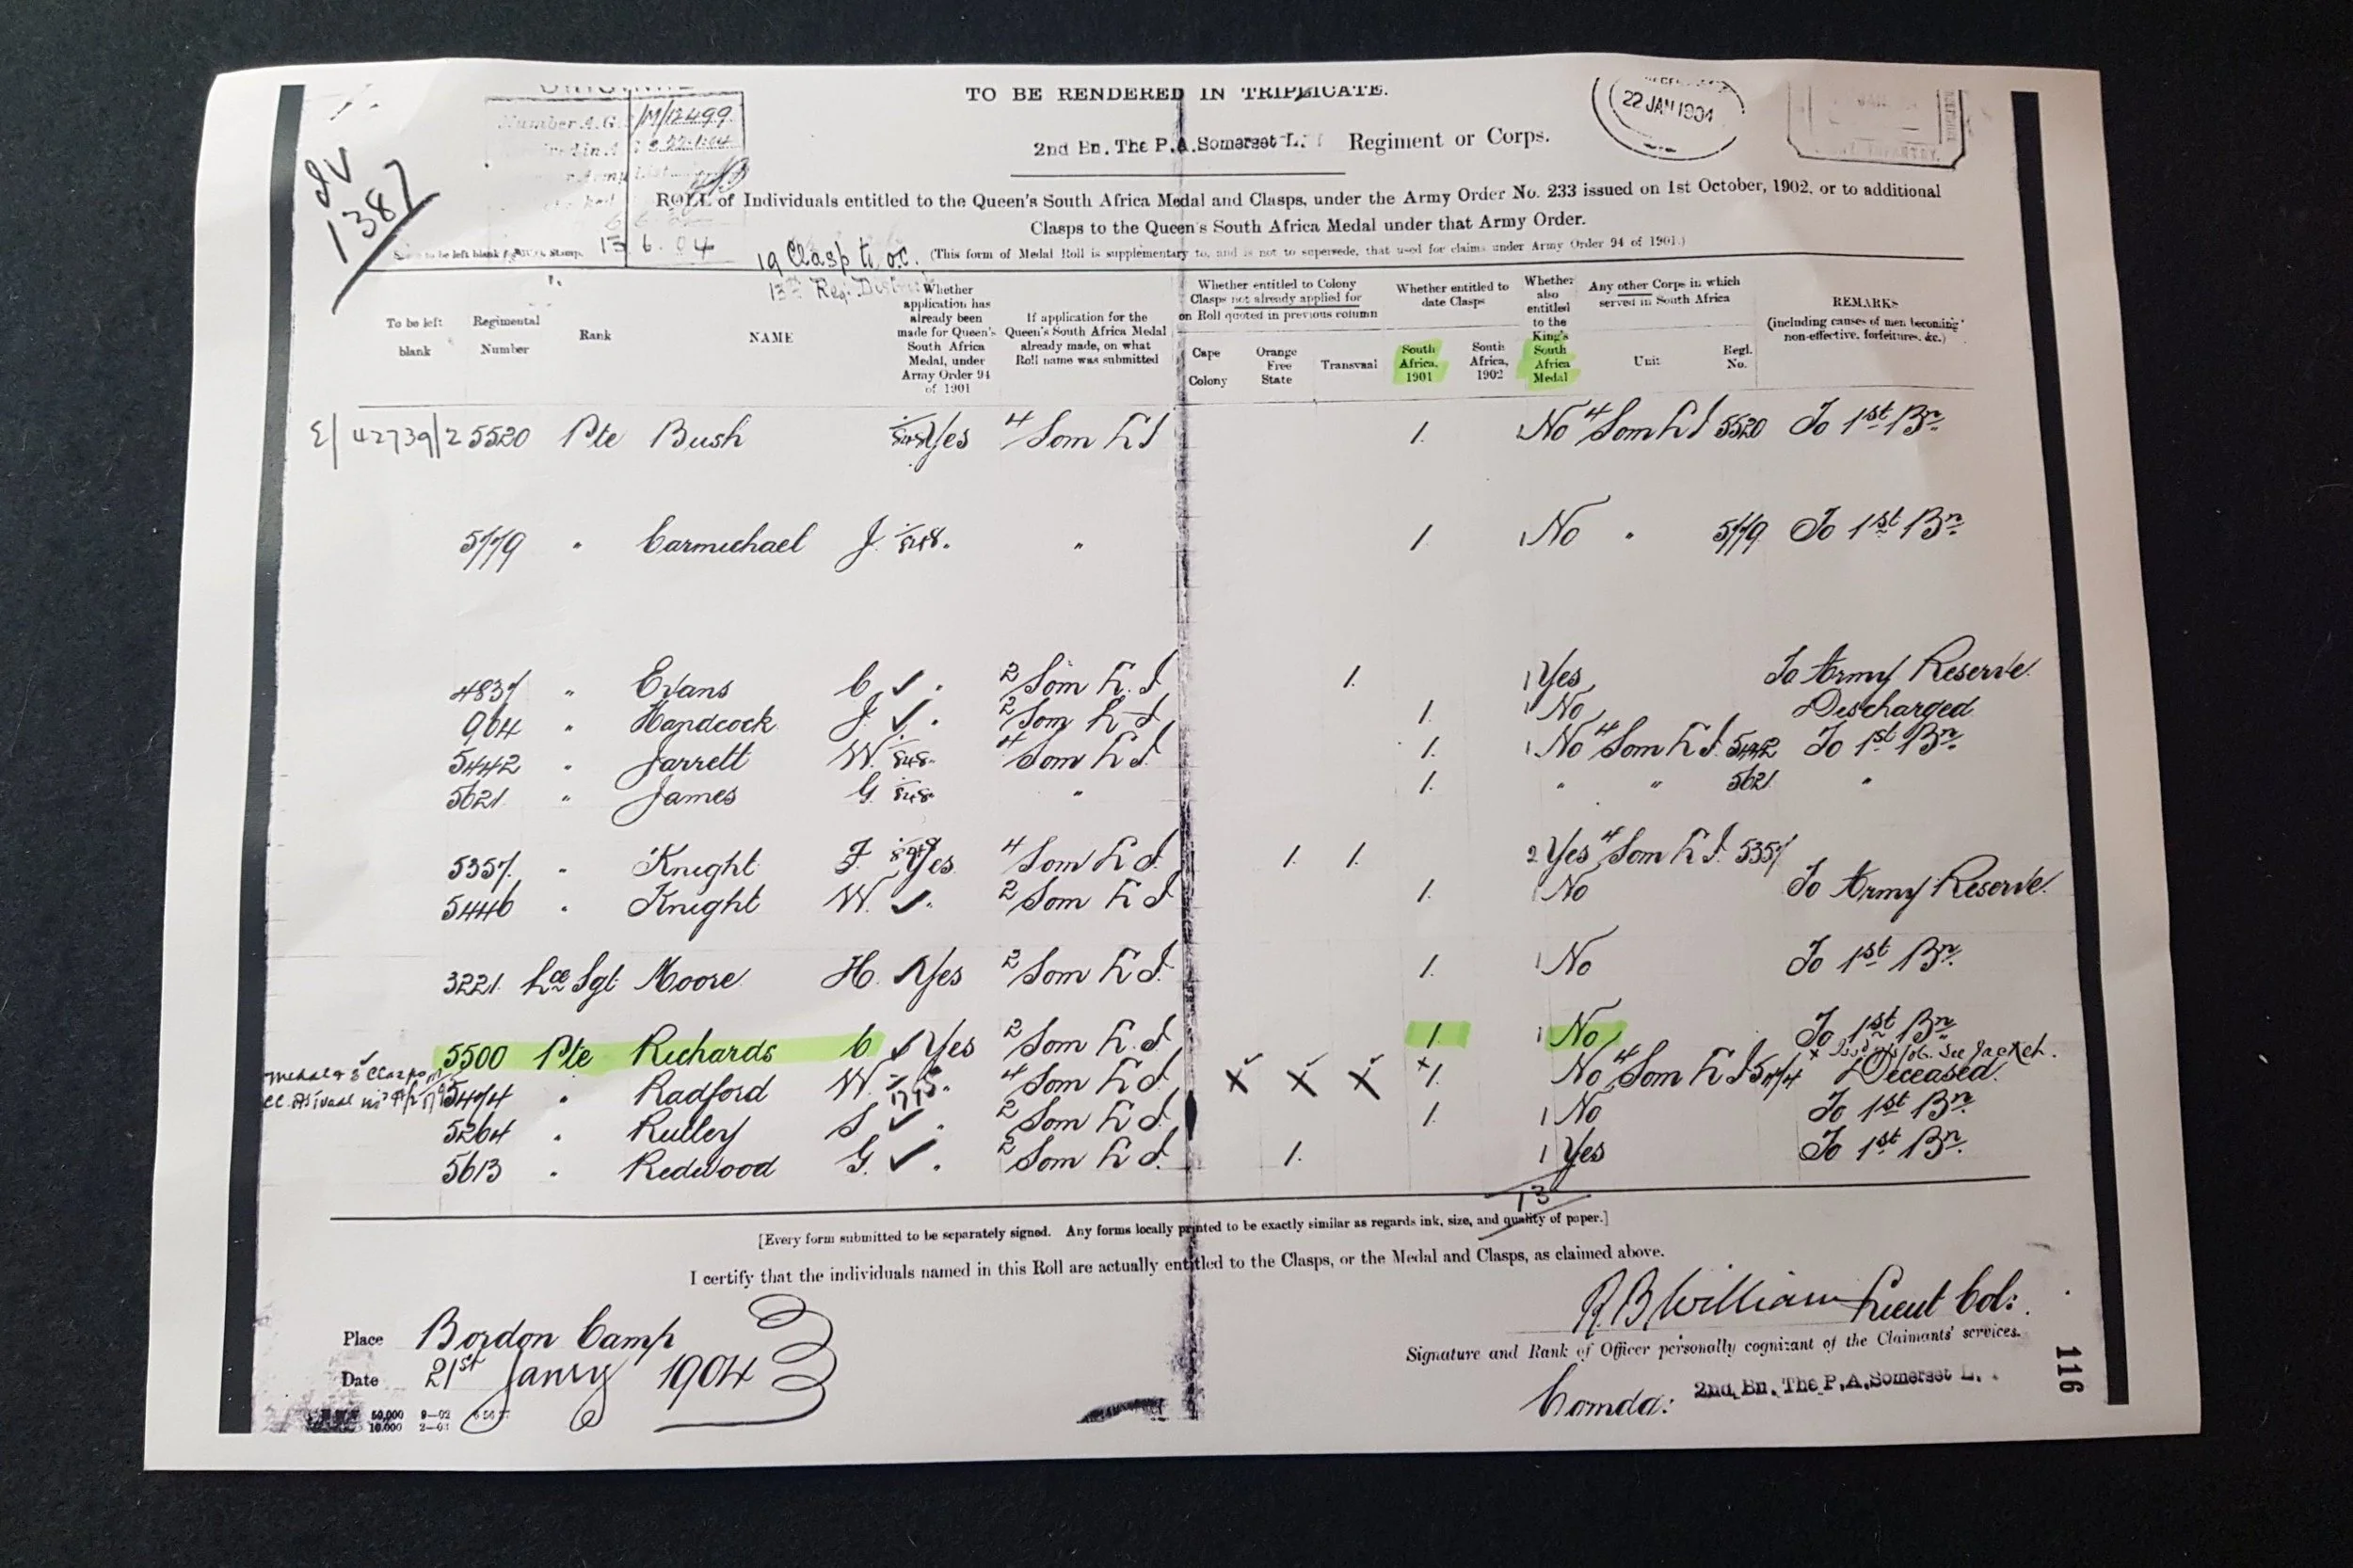 TO BE RENDERED IN TRIPLICATE.
Number A.G. /M/12499
22 JAN 1904
2nd Bn. The P.A. Somerset L. Regiment or Corps.
1387
ROLL of Individuals entitled to the Queen's South Africa Medal and Clasps, under the Army Order No. 233 issued on 1st October, 1902, or to additional
Clasps to the Queen's South Africa Medal under that Army Order.
to be left blank Stamp. 13 6. 04
19 Clasp to o.c. (This form of Medal Roll is supplementary to, and is not to supersede, that used for claims under Army Order 94 of 1901.)
13th Reg. District
To be left blank
Regimental Number
Rank
NAME
Whether application has already been made for Queen's South Africa Medal, under Army Order 94 of 1901
If application for the Queen's South Africa Medal already made, on what Roll name was submitted
Whether entitled to Colony Clasps not already applied for on Roll quoted in previous column
Cape Colony
Orange Free State
Transvaal
Whether entitled to date Clasps
South Africa, 1901
South Africa, 1902
Whether also entitled to the King's South Africa Medal
Any other Corps in which served in South Africa
Unit
Regl. No.
REMARKS
(including causes of men becoming non-effective, forfeitures, &c.)
E/42739/2 5520 Pte Bush Yes 4 Som L I 1. 1 No 4 Som L I 5520 To 1st Bn.
5779 " Carmichael J. " 1. 1 No " 5779 To 1st Bn.
4837 " Evans C. ✓ " 2 Som L. I 1. 1 Yes To Army Reserve.
964 " Handcock J. ✓ " 2 Som L I 1. 1 No Discharged
5442 " Jarrett W. 4 Som L I. 1. 1 No 4 Som L I. 5442 To 1st Bn.
5621. " James G. " 1. " " 5621 "
5357. " Knight F. Yes 4 Som L I. 1. 1. 2 Yes 4 Som L I. 5357
5446 " Knight W. ✓ " 2 Som L I 1. 1 No To Army Reserve.
3221. Lce Sgt Moore H. ✓ Yes 2 Som L I. 1. 1 No To 1st Bn.
5500 Pte Richards C ✓ Yes 2 Som L. I 1. 1 No To 1st Bn
Medal & 3 Clasps
5474 " Radford W. 4 Som L I. X X X x1. No 4 Som L I 5474 x See Jacket. Deceased.
5264 " Rulley S ✓ " 2 Som L I. 1. 1 No To 1st Bn.
5613 " Redwood G. ✓ " 2 Som L I. 1. 1 Yes To 1st Bn.
13
[Every form submitted to be separately signed. Any forms locally printed to be exactly similar as regards ink, size, and quality of paper.]
I certify that the individuals named in this Roll are actually entitled to the Clasps, or the Medal and Clasps, as claimed above.
Place Bordon Camp
Date 21st Janry 1904
R B William Lieut Col:
Signature and Rank of Officer personally cognizant of the Claimants' services.
Comdg: 2nd Bn. The P.A. Somerset L.
50,000 9—02
10,000 2—03
116